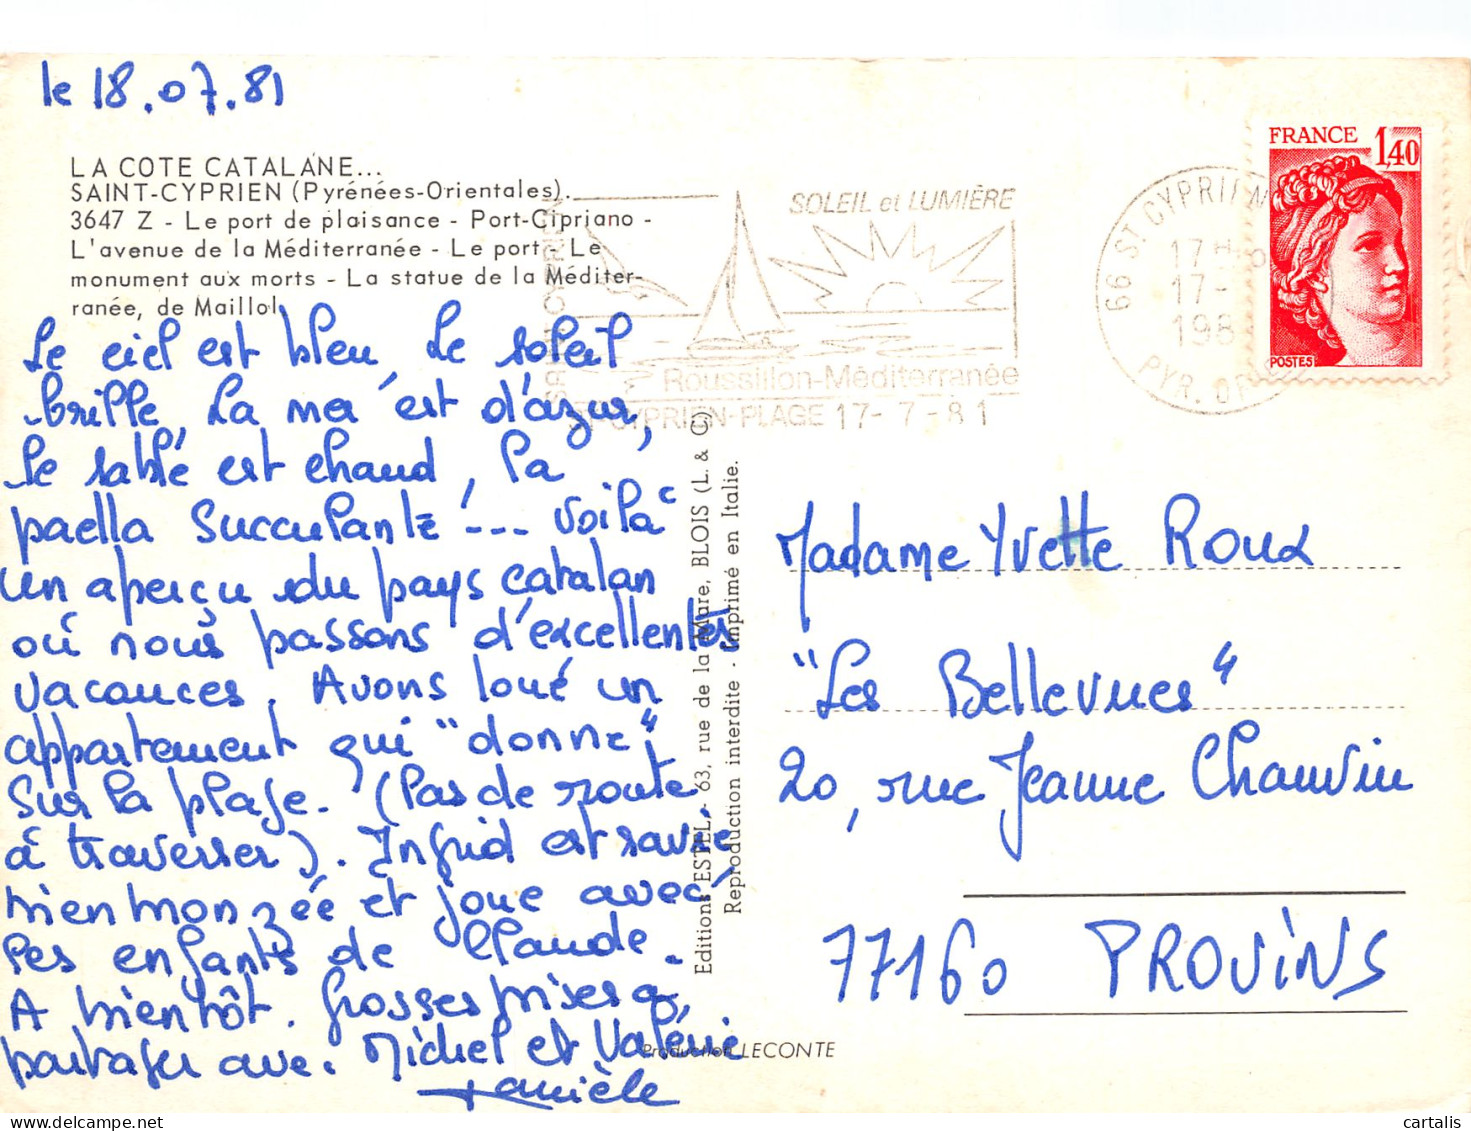 le 18.07.81
LA COTE CATALANE...
SAINT-CYPRIEN (Pyrénées-Orientales).
3647 Z - Le port de plaisance - Port-Cipriano -
L'avenue de la Méditerranée - Le port - Le
monument aux morts - La statue de la Méditer-
ranée, de Maillol
Le ciel est bleu, le soleil
brille, la mer est d'azur,
le sable est chaud, la
paella succulante ... voilà
un aperçu du pays catalan
où nous passons d'excellentes
vacances. Avons loué un
appartement qui "donne"
sur la plage. (Pas de route
à traverser). Ingrid est ravie
bien bronzée et joue avec
les enfants de Claude.
A bientôt. Grosses bises à
partager avec Michel et Valérie
Danièle
Editions ESTEL - 63, rue de la Mare, BLOIS (L. & C)
Reproduction interdite - Imprimé en Italie.
Production LECONTE
SOLEIL et LUMIÈRE
Roussillon-Méditerranée
ST CYPRIEN-PLAGE 17-7-81
66 ST CYPRIEN
17H
17-
198
PYR. OR
FRANCE 1,40
POSTES
Madame Yvette Roux
"Les Bellevues"
20, rue Jeanne Chauvin
77160 PROVINS
cartalis